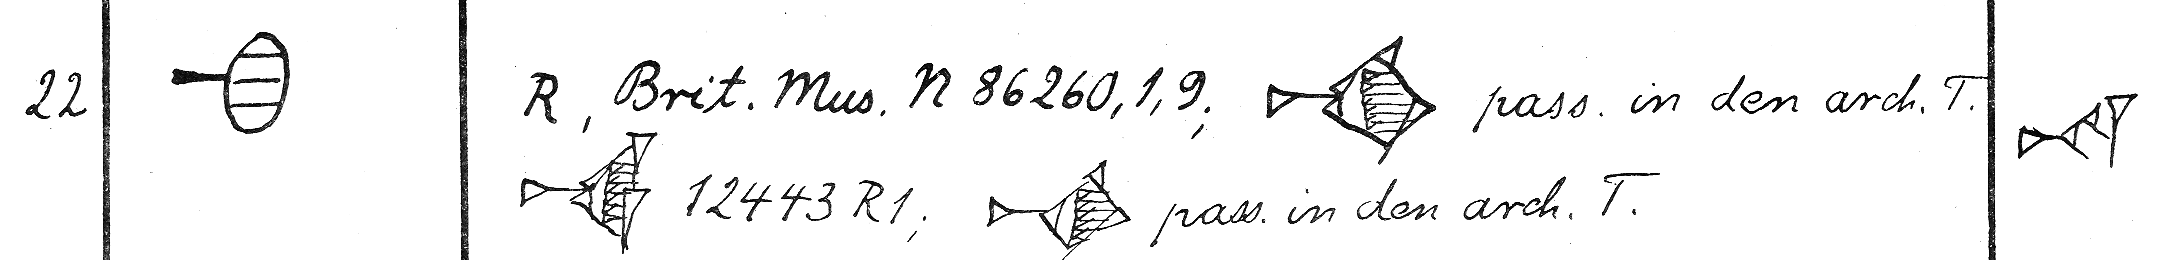 22 R, Brit. Mus. N 86260,1,9; pass. in den arch. T.
12443 R1; pass. in den arch. T.